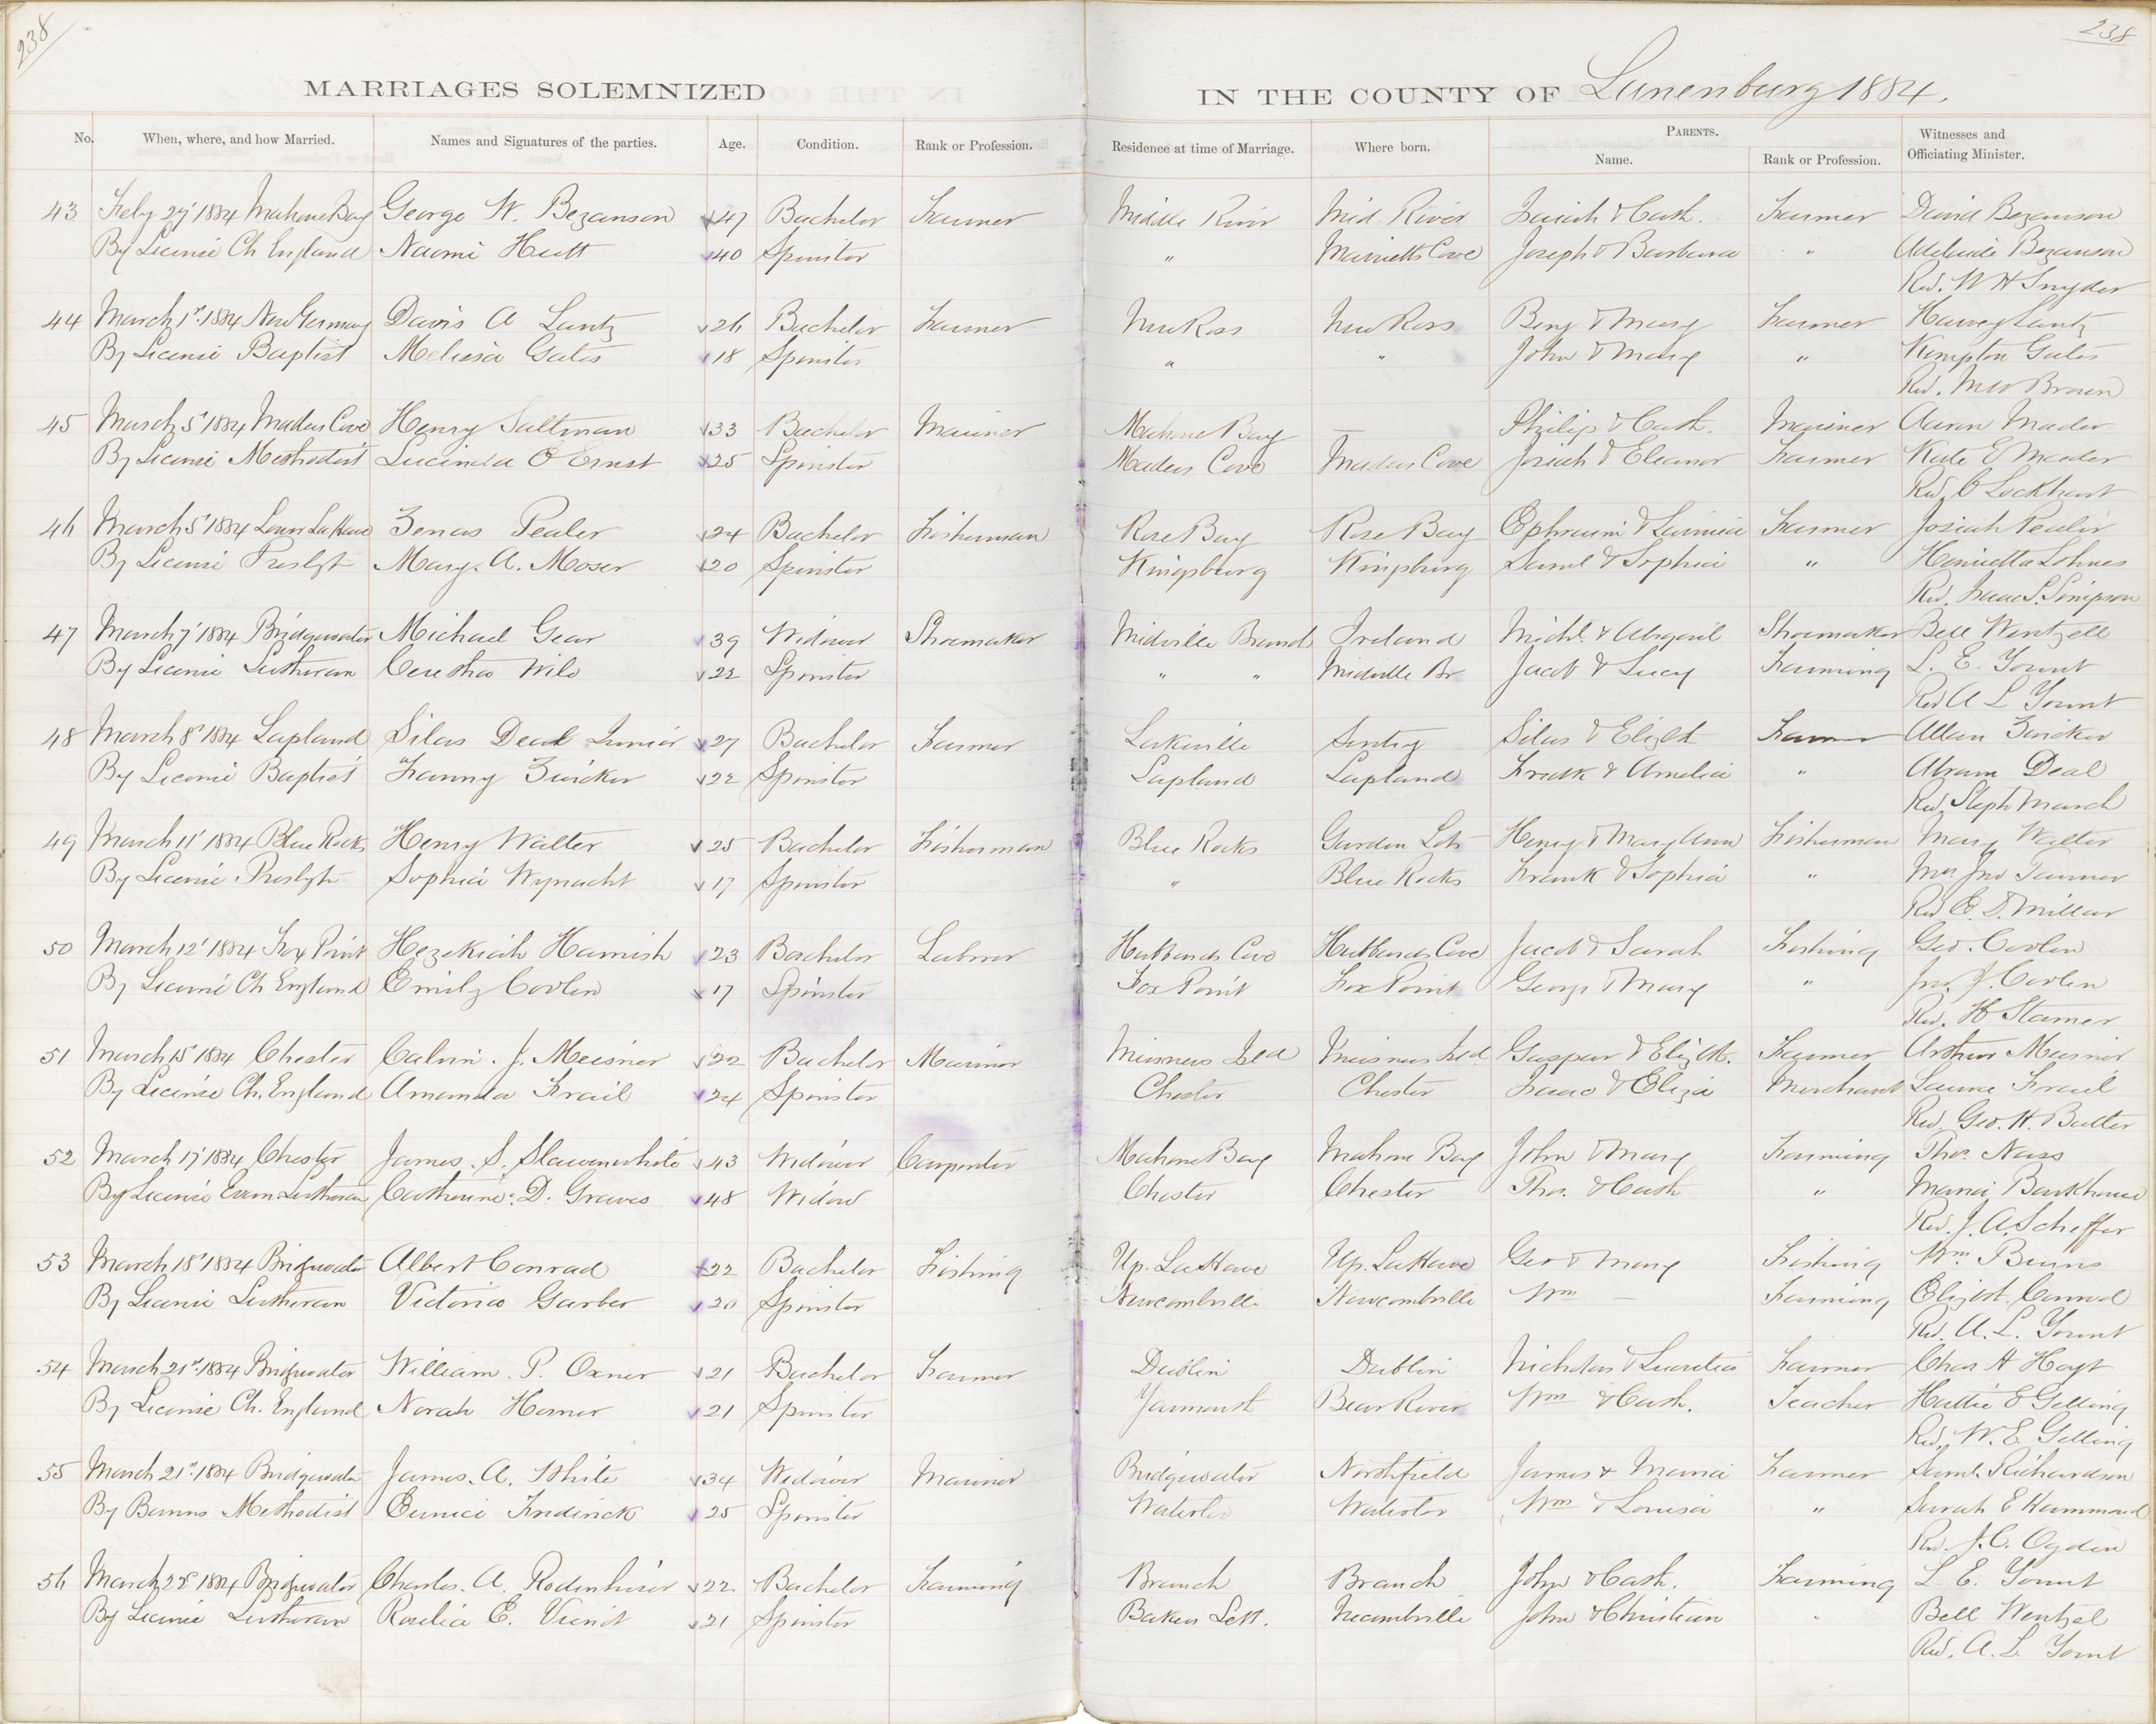 238
238
MARRIAGES SOLEMNIZED IN THE COUNTY OF Lunenburg 1884.
No. When, where, and how Married. Names and Signatures of the parties. Age. Condition. Rank or Profession. Residence at time of Marriage. Where born. PARENTS. Name. Rank or Profession. Witnesses and Officiating Minister.
43 Feby 27' 1884 Mahone Bay George W. Bezanson 47 Bachelor Farmer Middle River Mid. River Isaiah & Cath. Farmer David Bezanson
By License Ch England Naomi Hutt 40 Spinster " Marriotts Cove Joseph & Barbara " Adelaide Bezanson
Rev. W H Snyder
44 March 1st 1884 New Germany Davis A Lantz 26 Bachelor Farmer New Ross New Ross Benj & Mary Farmer Harvey Lantz
By License Baptist Melissa Gates 18 Spinster " " John & Mary " Kempton Gates
Rev. M W Brown
45 March 5' 1884 Maders Cove Henry Saltman 33 Bachelor Mariner Mahone Bay — Philip & Cath. Mariner Aaron Mader
By License Methodist Lucinda O Ernst 25 Spinster Maders Cove Maders Cove Josiah & Eleanor Farmer Kate E Mader
Rev. C Lockhart
46 March 5' 1884 Lower LaHave Zenas Pealer 24 Bachelor Fisherman Rose Bay Rose Bay Ephraim & Farmer Josiah Pealer
By License Presbyt Mary. A. Moser 20 Spinster Kingsburg Kingsburg Saml & Sophia " Henrietta Lohnes
Rev. Isaac S. Simpson
47 March 7' 1884 Bridgewater Michael Gear 39 Widower Shoemaker Midville Branch Ireland Michl. & Abigail Shoemaker Bell Wentzell
By License Lutheran Wile 22 Spinster " " Midville Br Jacob & Lucy Farming L. E. Yount
Rev A L Yount
48 March 8' 1884 Lapland Silas Deal Junior 27 Bachelor Farmer Lakeville Silas & Elizbt Farmer Allan Zwicker
By License Baptist Fanny Zwicker 22 Spinster Lapland Lapland Fredk & Amelia " Abram Deal
Rev. Steph March
49 March 11' 1884 Blue Rocks Henry Walter 25 Bachelor Fisherman Blue Rocks Garden Lots Henry & Mary Ann Fisherman Mary Walter
By License Presbyt Sophia Wynacht 17 Spinster " Blue Rocks Frank & Sophia " Mrs Jno Tanner
Rev E. D. Millar
50 March 12' 1884 Fox Point Hezekiah Harnish 23 Bachelor Labourer Hubbards Cove Hubbards Cove Jacob & Sarah Fishing Geo. Covlen
By License Ch England Emily Covlen 17 Spinster Fox Point Fox Point George & Mary " Jno. J. Covlen
Rev. H Stamer
51 March 15' 1884 Chester Calvin. J. Meisner 22 Bachelor Mariner Meisners Isld Meisners Isld Gaspar & Elizbth. Farmer Arthur Meisner
By License Ch. England Amanda Frail 24 Spinster Chester Chester Isaac & Eliza Merchant Laura Frail
Rev. Geo. H. Butler
52 March 17' 1884 Chester James. S. Slawenwhite 43 Widower Carpenter Mahone Bay Mahone Bay John & Mary Farming Thos. Nass
By License Evan. Lutheran Catherine. D. Graves 48 Widow Chester Chester Thos. & Cath " Maria Barkhouse
Rev. J. A. Scheffer
53 March 18' 1884 Bridgewater Albert Conrad 22 Bachelor Fishing Up. LaHave Up. LaHave Geo & Mary Fishing Wm.
By License Lutheran Victoria Garber 20 Spinster Newcombville Newcombville Wm — Farming Elizbt. Conrad
Rev. A. L. Yount
54 March 21st 1884 Bridgewater William. P. Oxner 21 Bachelor Farmer Dublin Dublin Nicholas & Lucretia Farmer Chas H Hoyt
By License Ch. England Norah Horner 21 Spinster Yarmouth Bear River Wm & Cath. Teacher Hattie E Gelling
Rev. W. E. Gelling
55 March 21st 1884 Bridgewater James. A. White 34 Widower Mariner Bridgewater Northfield James & Maria Farmer Saml. Richardson
By Banns Methodist Eunice Frederick 25 Spinster Waterloo Waterloo Wm & Louisa " Sarah E Hammond
Rev. J. C. Ogden
56 March 22d 1884 Bridgewater Charles. A. Rodenhiser 22 Bachelor Farming Branch Branch John & Cath. Farming L. E. Yount
By License Lutheran Rosilia E. Vienot 21 Spinster Bakers Sett. Necombville John & Christian " Bell Wentzel
Rev. A. L. Yount